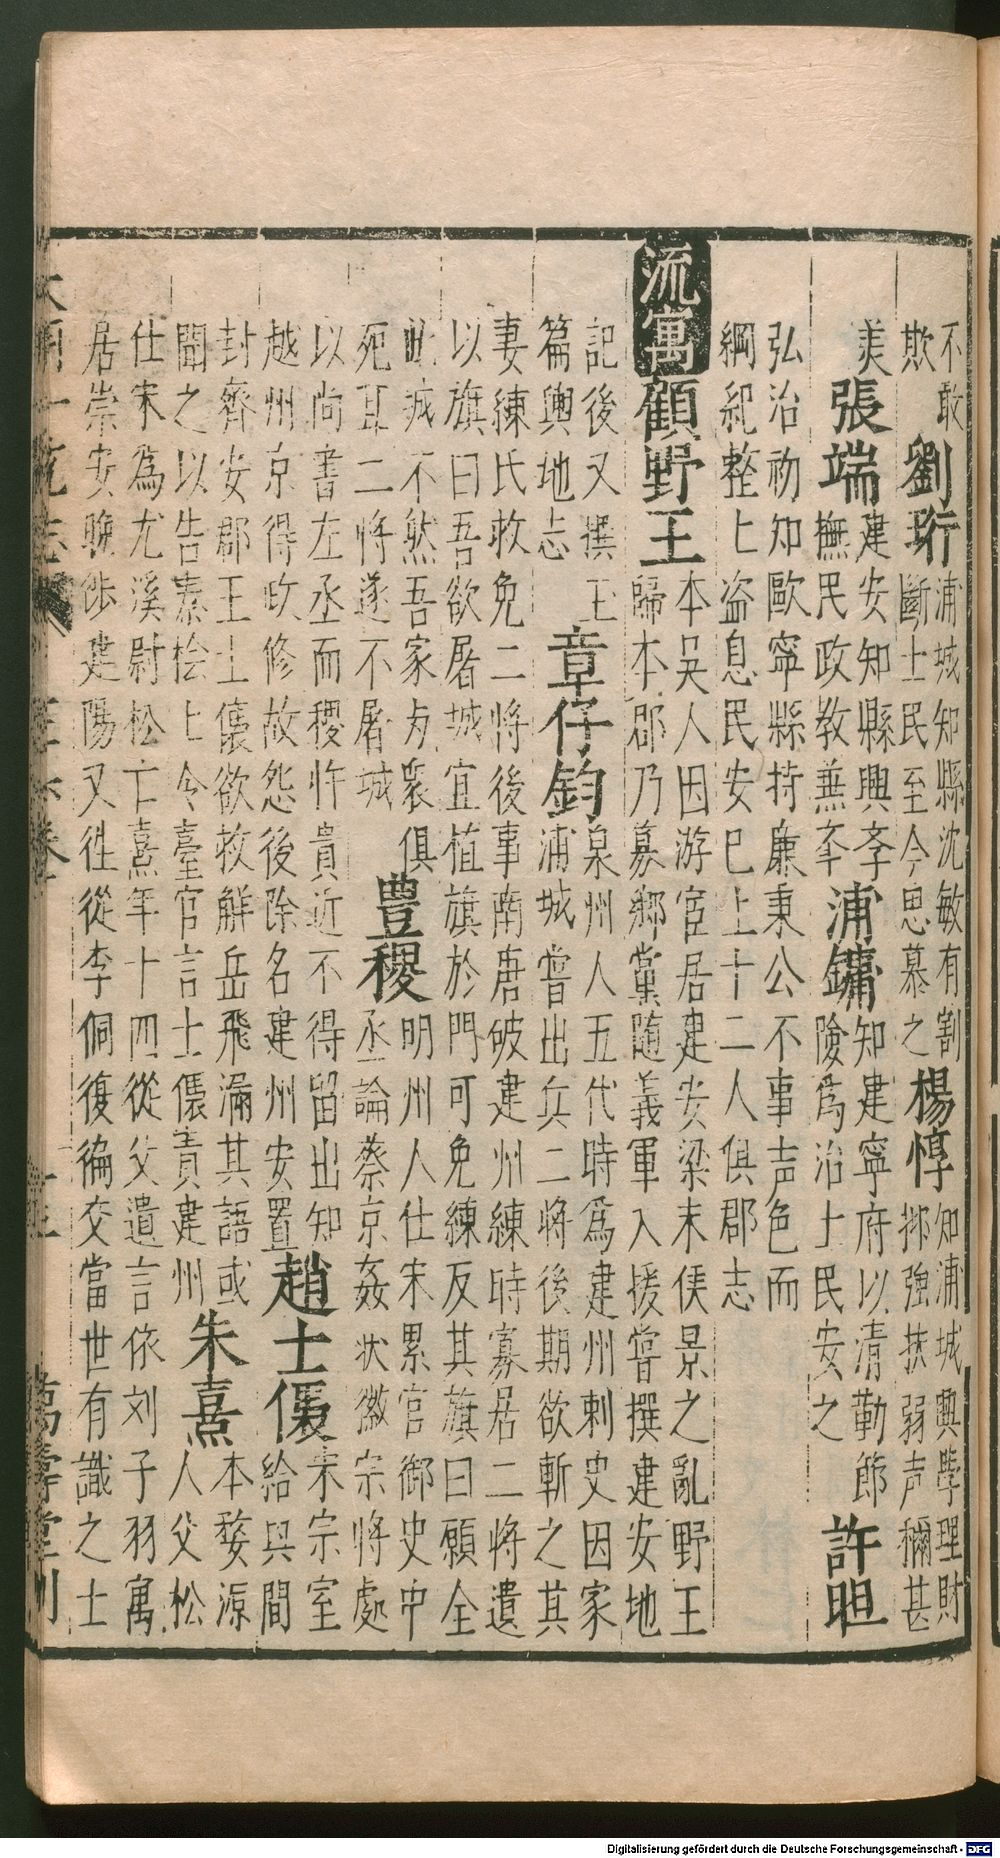 不敢
欺
劉珩
浦城知縣沈敏有割
斷士民至今思慕之
楊惇
知浦城興學理財
抑強扶弱声稱甚
美
張端
建安知縣興斈
撫民政教無斈
浦鏞
知建寧府以清勤節
險為治士民安之
許旦
弘治初知歐寧縣持廉秉公不事声色而
綱紀整上盜息民安已上十二人俱郡志
流寓
顧野王
本吳人因游宦居建安梁末侯景之亂野王
歸本郡乃募鄉黨隨義軍入援嘗撰建安地
記後又撰玉
篇輿地志
章仔鈞
泉州人五代時為建州剌史因家
浦城嘗出兵二將後期欲斬之其
妻練氏救免二將後事南唐破建州練時寡居二將遺
以旗曰吾欲屠城宜植旗於門可免練反其旗曰願全
此城不然吾家与衆俱
死耳二將遂不屠城
豊稷
明州人仕宋累官御史中
丞論蔡京姦状徽宗將處
以尚書左丞而稷忤貴近不得留出知
越州京得政修故怨後除名建州安置
趙士㒟
宋宗室
給與間
封齊安郡王士㒟欲救解岳飛漏其語或
聞之以告秦桧上令臺官言士㒟責建州
朱熹
本婺源
人父松
仕宋為尤溪尉松亡熹年十四從父遺言依刘子羽寓
居崇安晚徙建陽又徃從李侗復徧交當世有識之士
大明一統志
萬壽堂刊
Digitalisierung gefördert durch die Deutsche Forschungsgemeinschaft - DFG